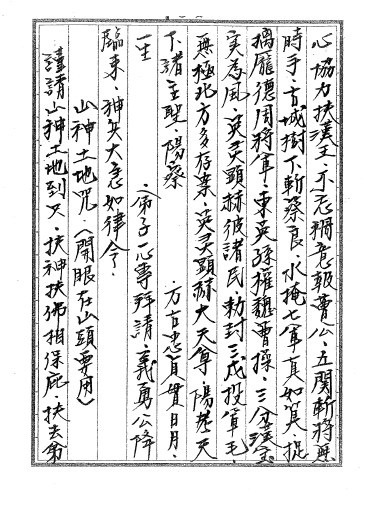 心協力扶漢王．不忘稠意報曹公．五關斬將無
時手．古城樹下斬蔡良．水掩七軍真如箕．捉
搊龐德周將軍．東吳孫權魏曹操．三分漢室
实為風．英灵顕赫彼諸民．勅封三戍投軍毛．
無極北方多存業．英灵顕赫大天尊．陽基天
下諸主聖．陽察　　方古忠貫日月．
一生　　（弟子一心專拜請．義勇公降
臨來．神兵火急如律令．
山神土地咒（開眼在山頭要用）
謹請山神土地到只．扶神扶佛相保庇．扶去弟